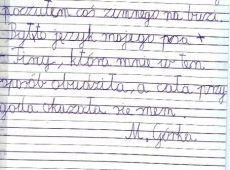 poczułem coś zimnego na buzi.
Był to język mojego psa +
iny, która mnie w ten
sposób obudziła, a cała przy
goda okazała się snem.
M. Górka